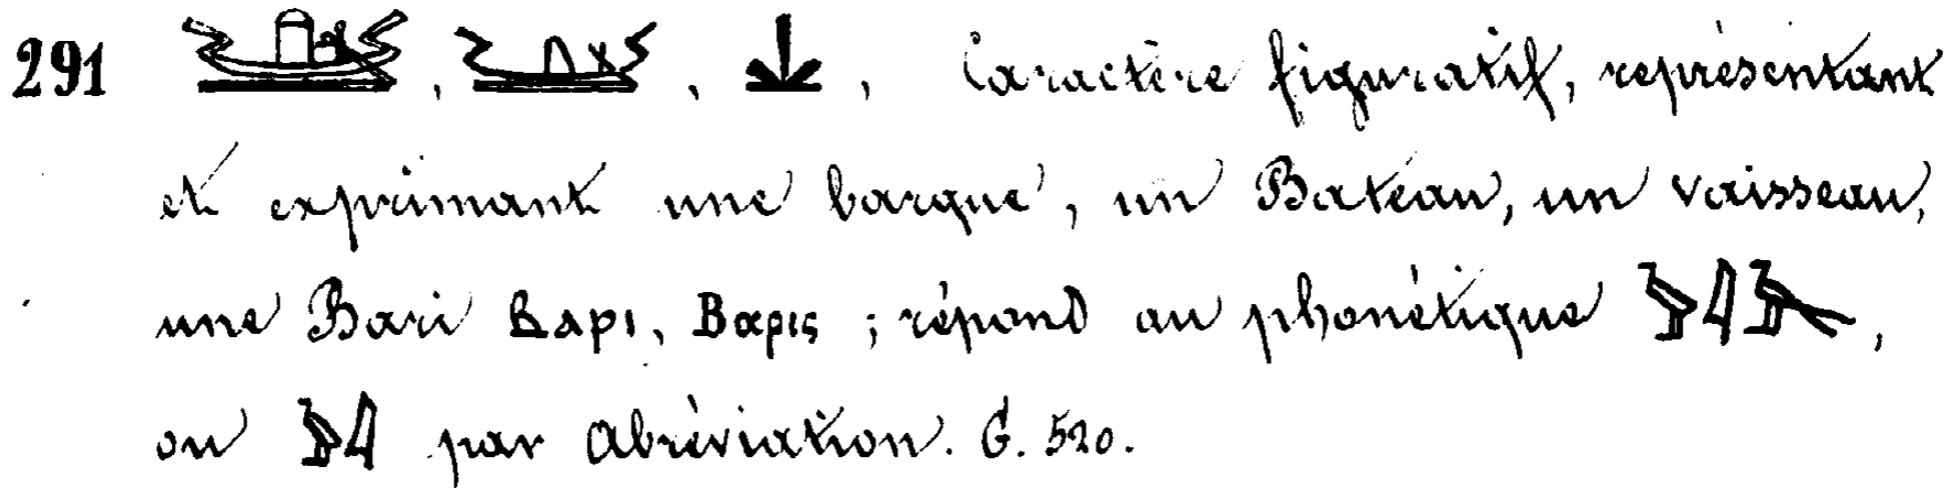 291 , , , Caractère figuratif, représentant
et exprimant une barque, un Bateau, un vaisseau,
une Bari ⲃⲁⲣⲓ, Βαρις ; répond au phonétique 𓅡𓇋𓅢,
ou 𓅡𓇋 par abréviation. G. 520.